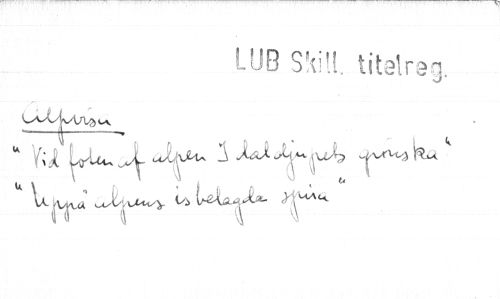 LUB Skill. titelreg.
Alpvisa
"Vid foten af alpen I daldjupets grönska"
"Uppå alpens isbelagda spira"